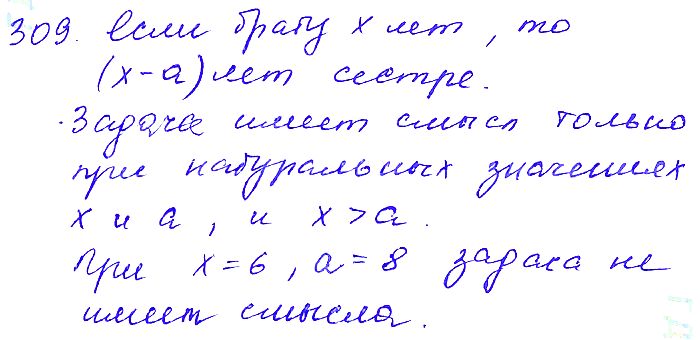 309. Если брату x лет, то
(x-a) лет сестре.
Задача имеет смысл только
при натуральных значениях
x и a, и x>a.
При x=6, a=8 задача не
имеет смысла.